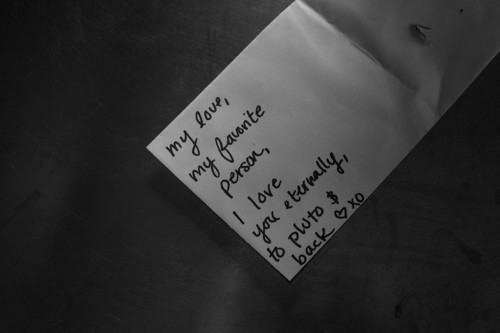 my love,
my favorite
person,
I love
you eternally,
to pluto &
back ♡ xo